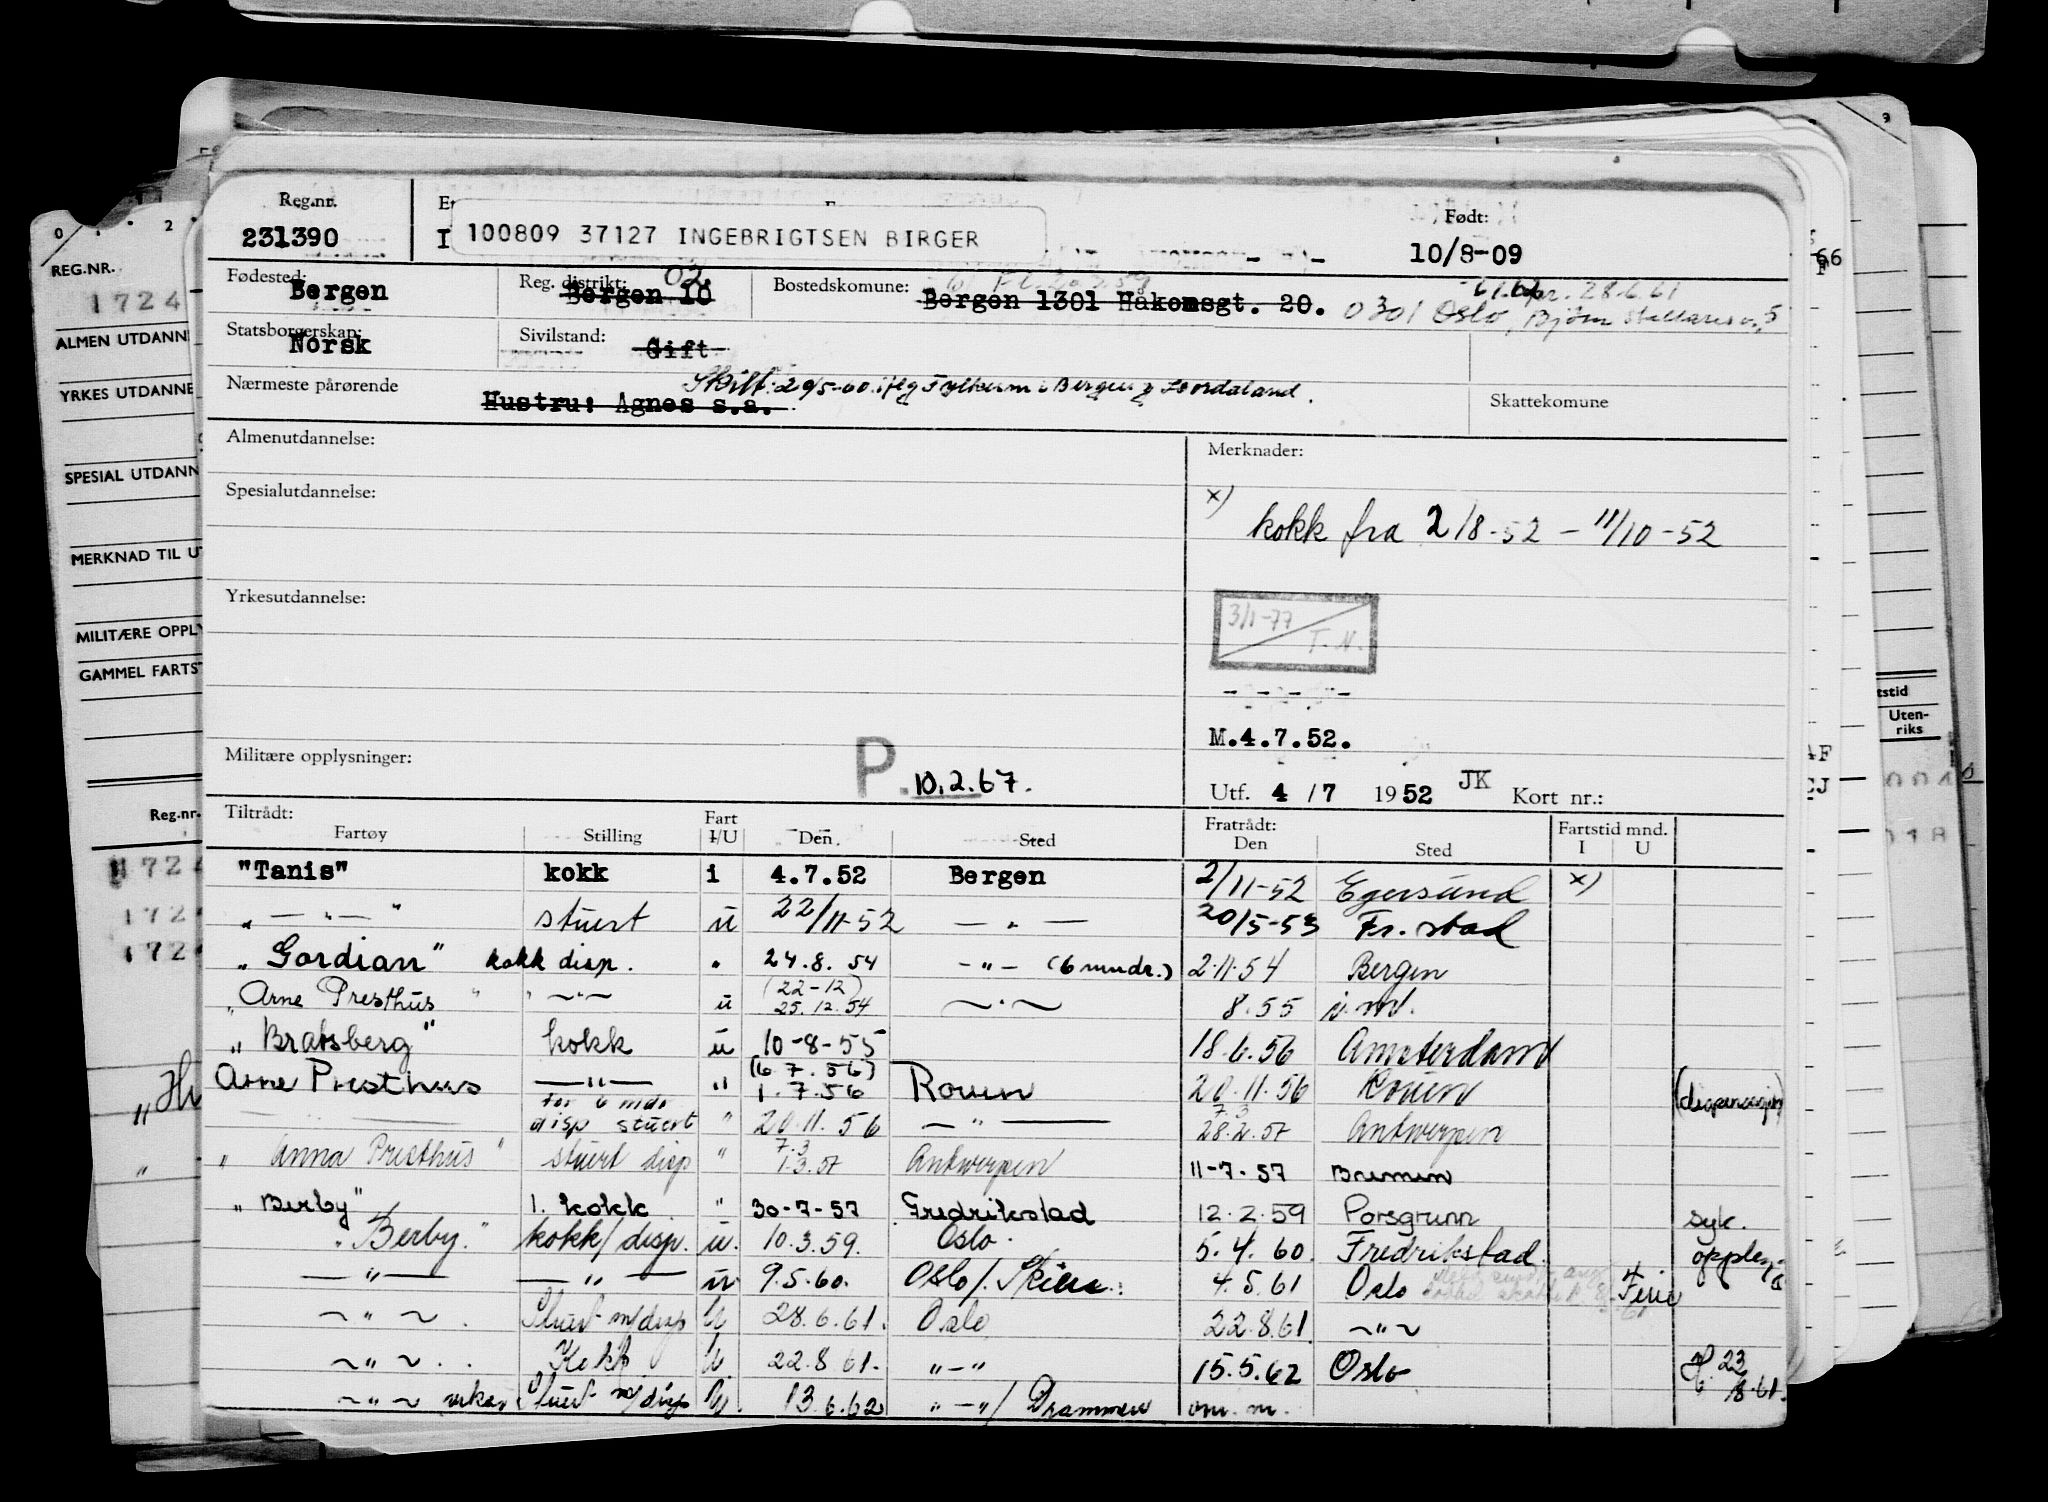 Reg.nr. Født:
231390 100809 37127 INGEBRIGTSEN BIRGER 10/8-09
Fødested: Reg. distrikt: 02. Bostedskomune:
Bergen Bergen 10 Bergen 1301 Håkonsgt. 20. 0301 Oslo, Bjørn Stallaresv. 5
28.6.61
Statsborgerskap: Sivilstand:
Norsk Gift
Nærmeste pårørende Skilt: 29/5-60 iflg Fylkesm i Bergen og Hordaland.
Hustru: Agnes s.a. Skattekomune
Almenutdannelse: Merknader:
Spesialutdannelse: x)
kokk fra 2/8-52 - 11/10-52
Yrkesutdannelse:
3/1-77
T.N.
M.4.7.52.
Militære opplysninger: P. 10.2.67.
Utf. 4/7 1952 JK Kort nr.:
Tiltrådt: Fratrådt: Fartstid mnd.
Fartøy Stilling Fart I/U Den Sted Den Sted I U
"Tanis" kokk i 4.7.52 Bergen 2/11-52 Egersund x)
" — " — " stuert u 22/11-52 — " — 20/5-53 Fr.stad
"Gordian" kokk disp. " 24.8.54 - " - (6 mndr.) 2.11.54 Bergen
(22-12)
"Arne Presthus" " ~ " ~ u 25.12.54 ~ " ~ 8.55
"Bratsberg" kokk u 10-8-55 18.6.56 Amsterdam
(6 7.56)
Arne Presthus — " — " 1.7.56 Rouen 20.11.56 Rouen
for 6 mdr 7.3 (dispensasjon)
disp stuert " 20.11.56 — " — 28.2.57 Antwerpen
7.3
"Anna Presthus" stuert disp " 1.3.57 Antwerpen 11-7-57 Bremen
"Berby" 1. kokk " 30-7-57 Fredrikstad 12.2.59 Porsgrunn syk.
"Berby." kokk/disp. u. 10.3.59. Oslo. 5.4.60. Fredrikstad.
— " — — " — u 9.5.60. Oslo/. Skien. 4.5.61 Oslo Ferie
~ " ~ . Stuert m/disp U 28.6.61. Oslo 22.8.61 ~ " ~
~ " ~ . . Kokk U. 22.8.61. " - " 15.5.62 Oslo 23
8.61.
~ " ~ Stuert m/disp U. 13.6.62 " - "/ Drammen
REG.NR.
1724
ALMEN UTDANN
YRKES UTDANNE
SPESIAL UTDANN
MERKNAD TIL U
MILITÆRE OPPLY
GAMMEL FARTST
Reg.nr.
66
tstid
Uten-
riks